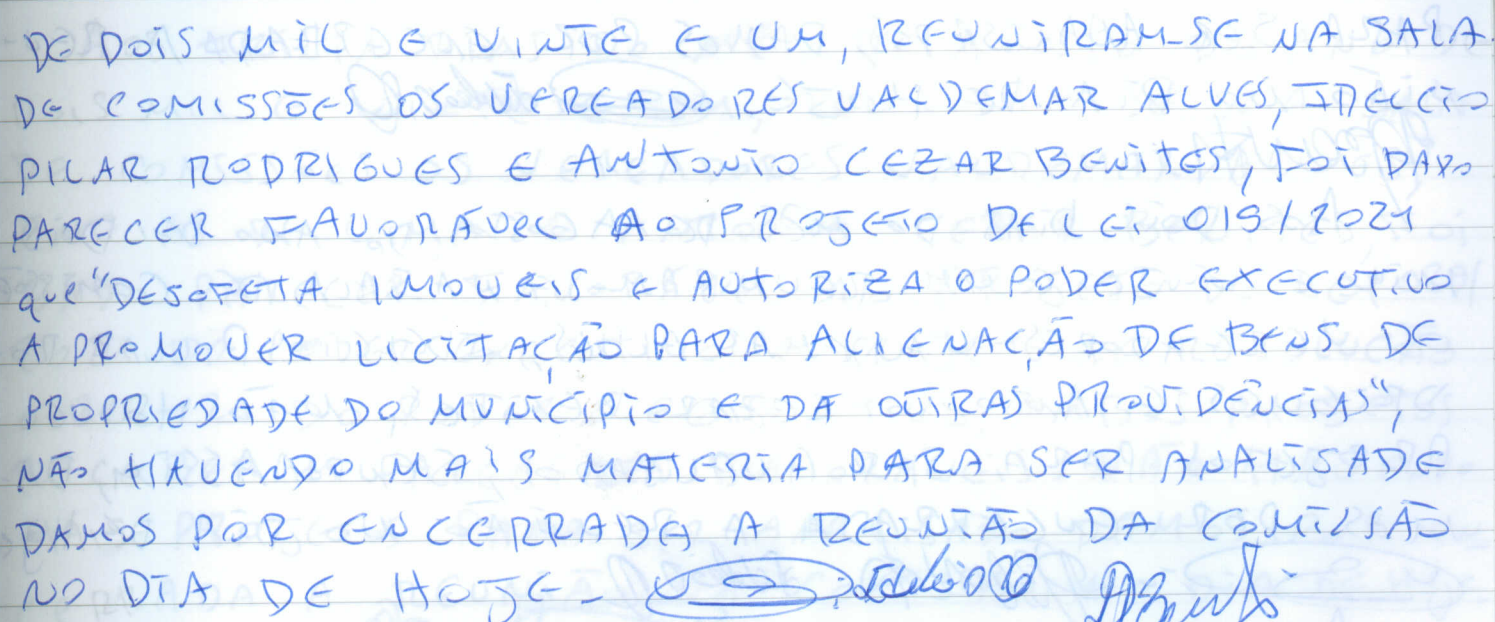 DE DOIS MIL E VINTE E UM, REUNIRAM-SE NA SALA
DE COMISSÕES OS VEREADORES VALDEMAR ALVES, IDELCIO
PILAR RODRIGUES E ANTONIO CEZAR BENITES, FOI DADO
PARECER FAVORÁVEL AO PROJETO DE LEI 019/2021
que "DESAFETA IMOVEIS E AUTORIZA O PODER EXECUTIVO
A PROMOVER LICITAÇÃO PARA ALIENAÇÃO DE BENS DE
PROPRIEDADE DO MUNICÍPIO E DA OUTRAS PROVIDÊNCIAS",
NÃO HAVENDO MAIS MATERIA PARA SER ANALISADE
DAMOS POR ENCERRADA A REUNIÃO DA COMISSÃO
NO DIA DE HOJE -